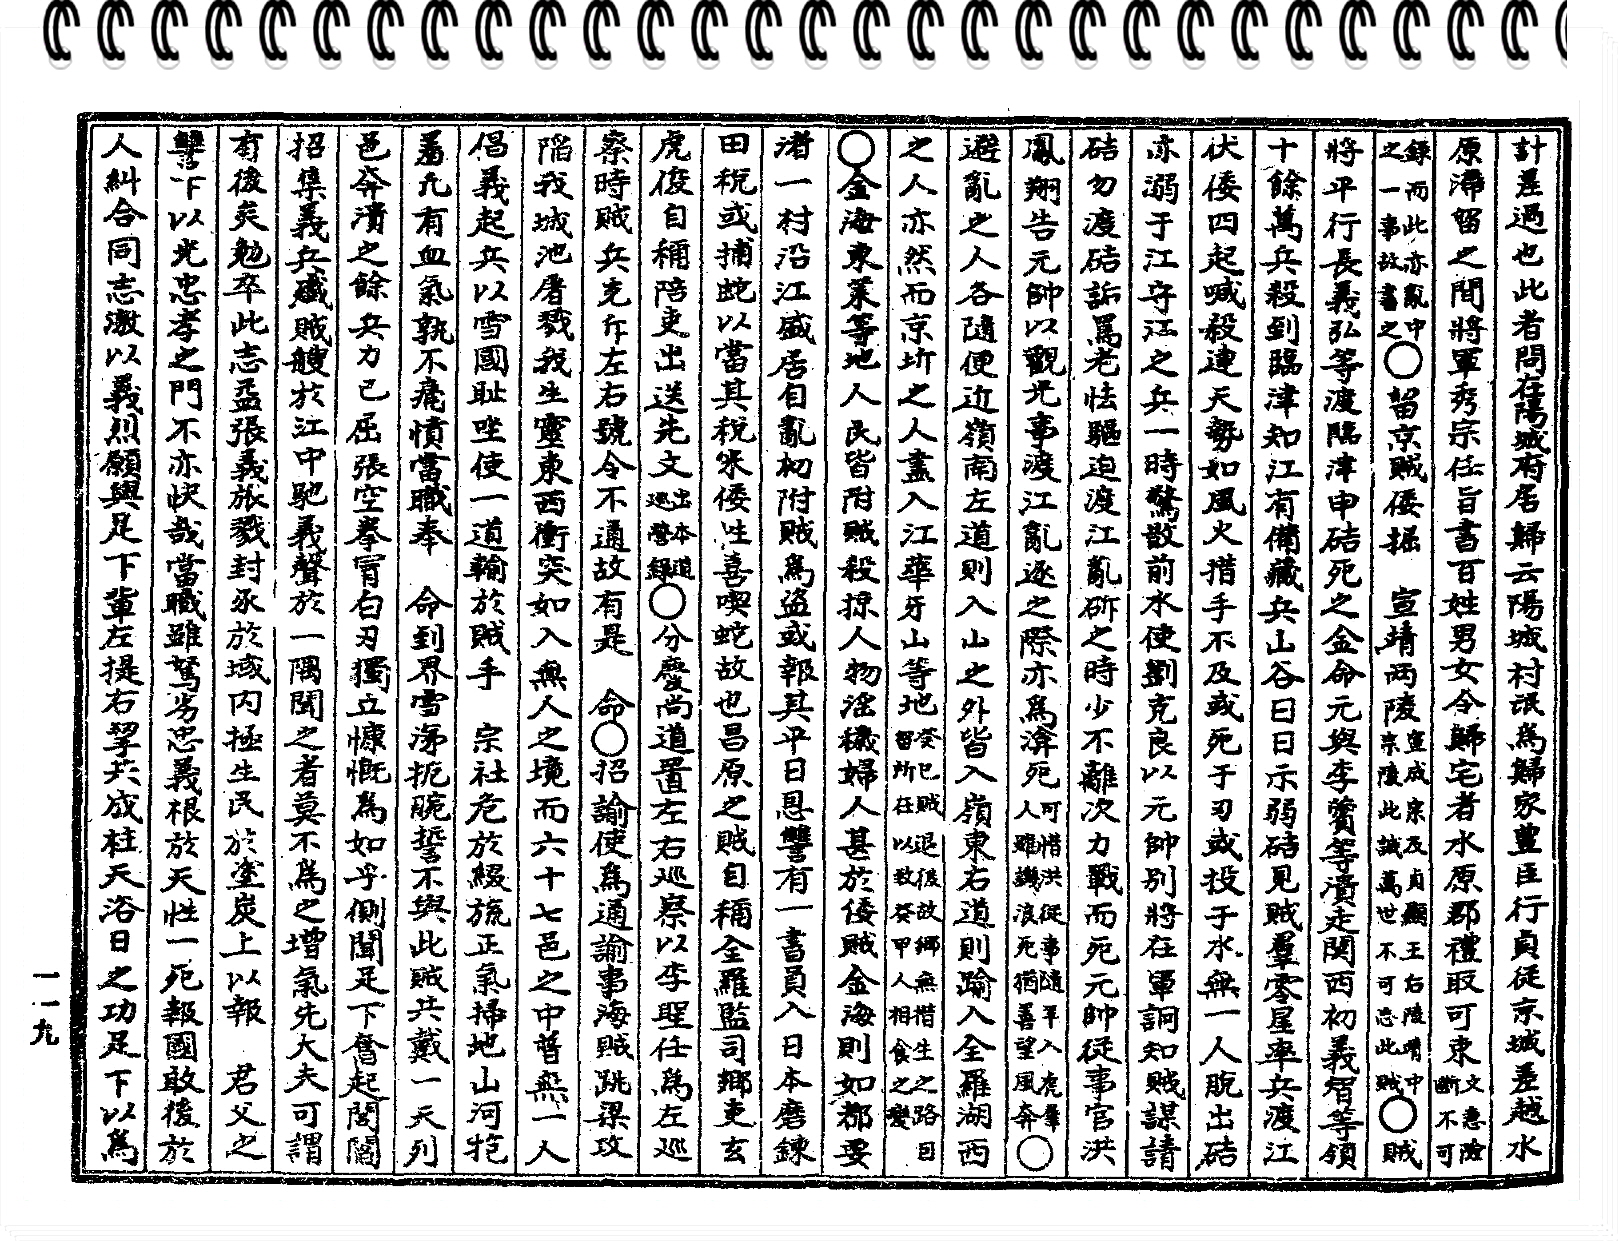 計差過也此者問在陽城府居歸云陽城村氓為歸家豊臣行貞從京城差越水
原滯留之間將軍秀宗任旨書百姓男女令歸宅者水原郡禮取可東文惡險斷不可
錄而此亦亂中之一事故書之○留京賊倭掘 宣靖兩陵宣成宗及貞顯王右陵靖中宗陵此誠萬世不可忘此賊○賊
將平行長義弘等渡臨津申硈死之金命元與李薲等潰走関西初義智等領
十餘萬兵殺到臨津知江有備藏兵山谷曰日示弱硈見賊羣零星率兵渡江
伏倭四起喊殺連天勢如風火措手不及或死于刃或投于水無一人脫出硈
亦溺于江守江之兵一時驚散前水使劉克良以元帥別將在軍詗知賊謀請
硈勿渡硈訴爲老怯驅迫渡江亂斫之時少不離次力戰而死元帥從事官洪
鳳翔告元帥以觀光事渡江亂逐之際亦為渰死人可惜洪從事隨平入虎穴雖譏浪死猶善望風奔○
避亂之人各隨便近嶺南左道則入山之外皆入嶺東右道則踰入全羅湖西
之人亦然而京圻之人盡入江華牙山等地癸巳賊退後故鄉無措生之路因留所在以致癸甲人相食之變
○金海東萊等地人民皆附賊殺掠人物淫穢婦人甚於倭賊金海則如都要
渚一村沿江盛居自亂初附賊為盜或報其平日恩讐有一書員入日本磨鍊
田稅或捕蛇以當其稅米倭性喜喫蛇故也昌原之賊自稱全羅監司鄉吏玄
虎俊自稱陪吏出送先文出本道巡營錄○分慶尚道置左右巡察以李聖任為左巡
察時賊兵充斥左右號令不通故有是 命○招諭使為通諭事海賊跳梁攻
陷我城池屠戮我生靈東西衝突如入無人之境而六十七邑之中曾無一人
倡義起兵以雪國耻坐使一道輸於賊手 宗社危於綴旒正氣掃地山河抱
羞凡有血氣孰不痛憤當職奉 命到界雪涕扼腕誓不與此賊共戴一天列
邑奔潰之餘兵力已屈張空拳冐白刃獨立慷慨為如乎側聞足下奮起閭閻
招集義兵殲賊艘於江中馳義聲於一隅聞之者莫不為之增氣先大夫可謂
有後矣勉卒此志益張義旅戮封豕於域内拯生民於塗炭上以報 君父之
讐下以光忠孝之門不亦快哉當職雖駑劣忠義根於天性一死報國敢後於
人糾合同志激以義烈願與足下輩左提右挈共成柱天浴日之功足下以為
一一九